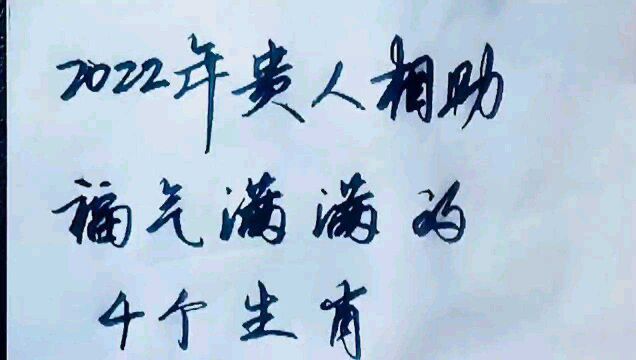 2022年贵人相助
福气满满的
4个生肖